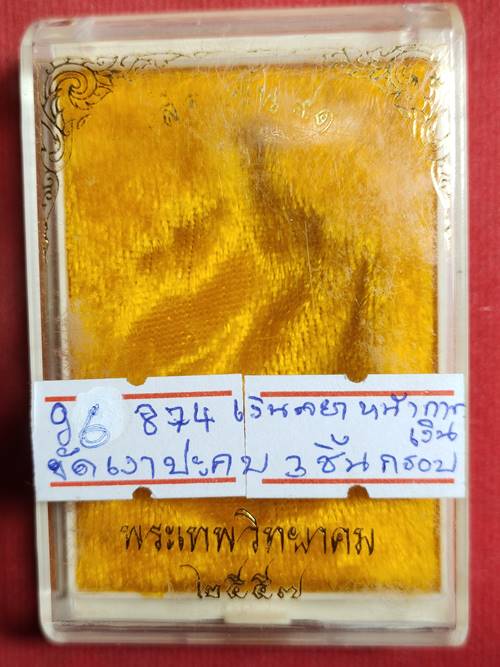 96 874 เงินลงยา หน้ากาก
เงิน
ขัดเงาปะคบ 3 ชิ้น กรอบ
พระเทพวิทยาคม
๒๕๕๗